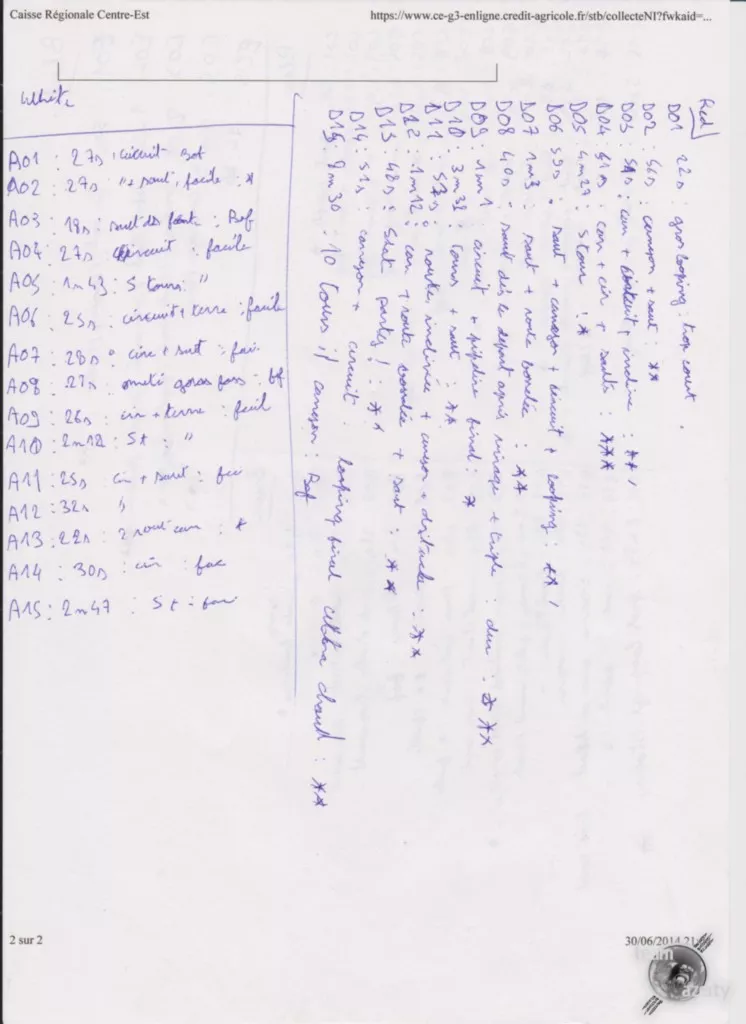 Caisse Régionale Centre-Est
https://www.ce-g3-enligne.credit-agricole.fr/stb/collecteNI?fwkaid=...
White
A01 : 27s : circuit Bof
A02 : 27s " + saut, facile : *
A03 : 19s : saut de : Bof
A04 : 27s circuit : facile
A05 : 1m43 : 5 tours : "
A06 : 25s : circuit + terre : facile
A07 : 28s : circ + saut : fac
A08 : 27s
A09 : 26s : cir + terre : facil
A10 : 2m12 : 5t : "
A11 : 25s cir + saut : fac
A12 : 32s "
A13 : 22s : 2 saut : *
A14 : 30s : cir : fac
A15 : 2m47 : 5t : fac
Red
D01 22s : gros looping : trop court .
D02 : 56s : canyon + saut : **
D03 : can + incliné : **
D04 : can + cir + sauts : ***
D05 : 4m29 : 5 tour : *
D06 59s : saut + canyon + circuit + looping : **
D07 1m3 saut + route bombée : **
D08 40s : saut dès le départ après virage + triple : dur : ***
D09 : 1m1 : circuit + final : *
D10 : 3m38 : tours + saut : **
D11 : 57s : route inclinée + canyon + obstacle : **
D12 : 1m12 : can + route bombée + saut : **
D13 : 48s : partez ! : **
D14 : 51s : canyon + circuit : looping final chaud : **
D15 9m30 : 10 tours canyon : Bof
2 sur 2
30/06/2014 21